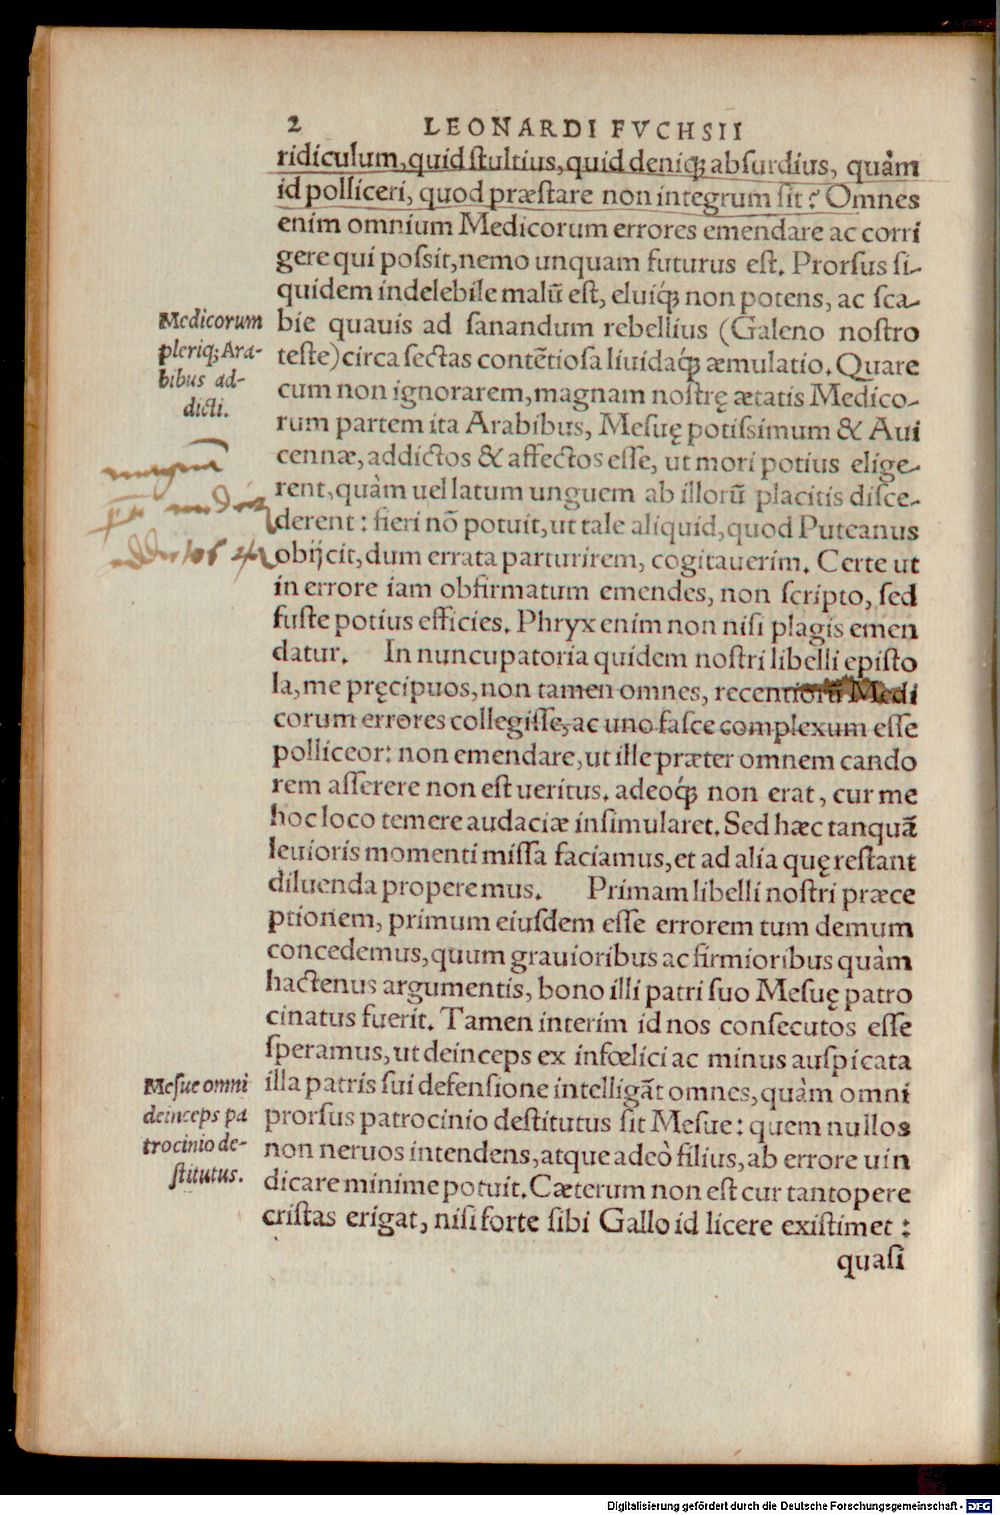 2 LEONARDI FVCHSII
ridiculum, quid stultius, quid deniqꝫ absurdius, quàm
id polliceri, quod præstare non integrum sit? Omnes
enim omnium Medicorum errores emendare ac corri
gere qui possit, nemo unquam futurus est. Prorsus si-
quidem indelebile malũ est, eluiqꝫ non potens, ac sca-
Medicorum
pleriqꝫ Ara-
bibus ad-
dicti.
bie quauis ad sanandum rebellius (Galeno nostro
teste) circa sectas contẽtiosa liuidaqꝫ æmulatio. Quare
cum non ignorarem, magnam nostrę ætatis Medico-
rum partem ita Arabibus, Mesuę potissimum & Aui
cennæ, addictos & affectos esse, ut mori potius elige-
rent, quàm uel latum unguem ab illorũ placitis disce-
derent: fieri nõ potuit, ut tale aliquid, quod Puteanus
obijcit, dum errata parturirem, cogitauerim. Certe ut
in errore iam obfirmatum emendes, non scripto, sed
fuste potius efficies. Phryx enim non nisi plagis emen
datur. In nuncupatoria quidem nostri libelli episto
la, me pręcipuos, non tamen omnes, recentiorũ Medi
corum errores collegisse, ac uno fasce complexum esse
polliceor: non emendare, ut ille præter omnem cando
rem asserere non est ueritus. adeoqꝫ non erat, cur me
hoc loco temere audaciæ insimularet. Sed hæc tanquã
leuioris momenti missa faciamus, et ad alia quę restant
diluenda properemus. Primam libelli nostri præce
ptionem, primum eiusdem esse errorem tum demum
concedemus, quum grauioribus ac firmioribus quàm
hactenus argumentis, bono illi patri suo Mesuę patro
cinatus fuerit. Tamen interim id nos consecutos esse
speramus, ut deinceps ex infœlici ac minus auspicata
Mesue omni
deinceps pa
trocinio de-
stitutus.
illa patris sui defensione intelligãt omnes, quàm omni
prorsus patrocinio destitutus sit Mesue: quem nullos
non neruos intendens, atque adeò filius, ab errore uin
dicare minime potuit. Cæterum non est cur tantopere
cristas erigat, nisi forte sibi Gallo id licere existimet:
quasi
Digitalisierung gefördert durch die Deutsche Forschungsgemeinschaft - DFG